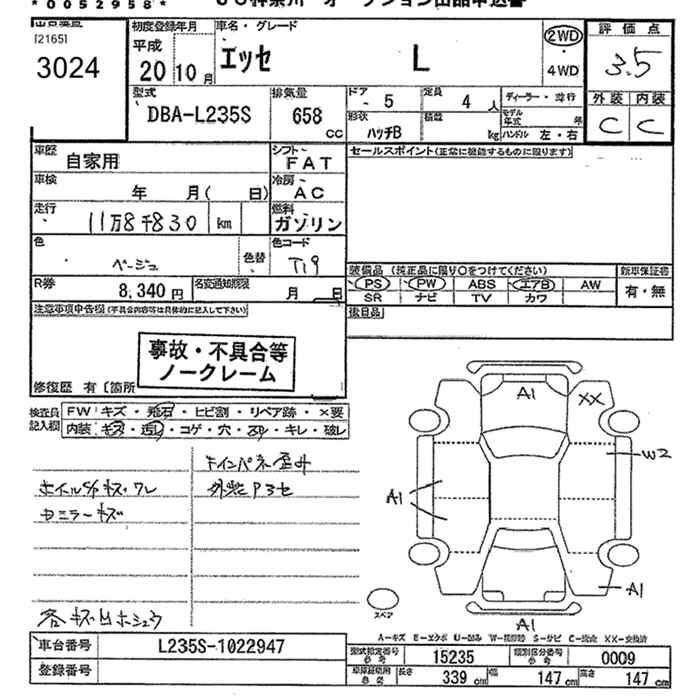 *0052958*
[2165]
3024
初度登録年月
平成
20 10月
車名・グレード
エッセ L
2WD
・4WD
評価点
3.5
外装 内装
C C
型式
DBA-L235S
排気量
658 CC
ドア
- 5
定員
4 人
形状
ハッチB
積載
kg
ディーラー・並行
モデル年式 年
ハンドル 左・右
車歴
自家用
シフト
FAT
セールスポイント(正常に機能するものに限ります)
車検
年 月( 日)
冷房
AC
走行
11万8千830 km
燃料
ガソリン
色
ベージュ
色替
色コード
T19
R券
8,340円
名変通知期限
月 日
装備品 (純正品に限り○をつけてください)
新車保証書
PS PW ABS エアB AW
SR ナビ TV カワ
有・無
後日品
注意事項申告欄(不具合内容等は具体的に記入して下さい)
事故・不具合等
ノークレーム
修復歴 有〔箇所
検査員記入欄
FW キズ・飛石・ヒビ割・リペア跡・×要
内装 キズ・汚れ・コゲ・穴・スレ・キレ・破レ
外装Pヨセ
ホイルS/Pキズ・ワレ
ミラーキズ
A1
XX
W2
A1
A1
A1
スペア
A-キズ E-エクボ U-凹み W-補修跡 S-サビ C-腐食 XX-交換済
車台番号
L235S-1022947
登録番号
型式指定番号
15235
類別区分番号
0009
長さ 339 cm
幅 147 cm
高さ 147 cm